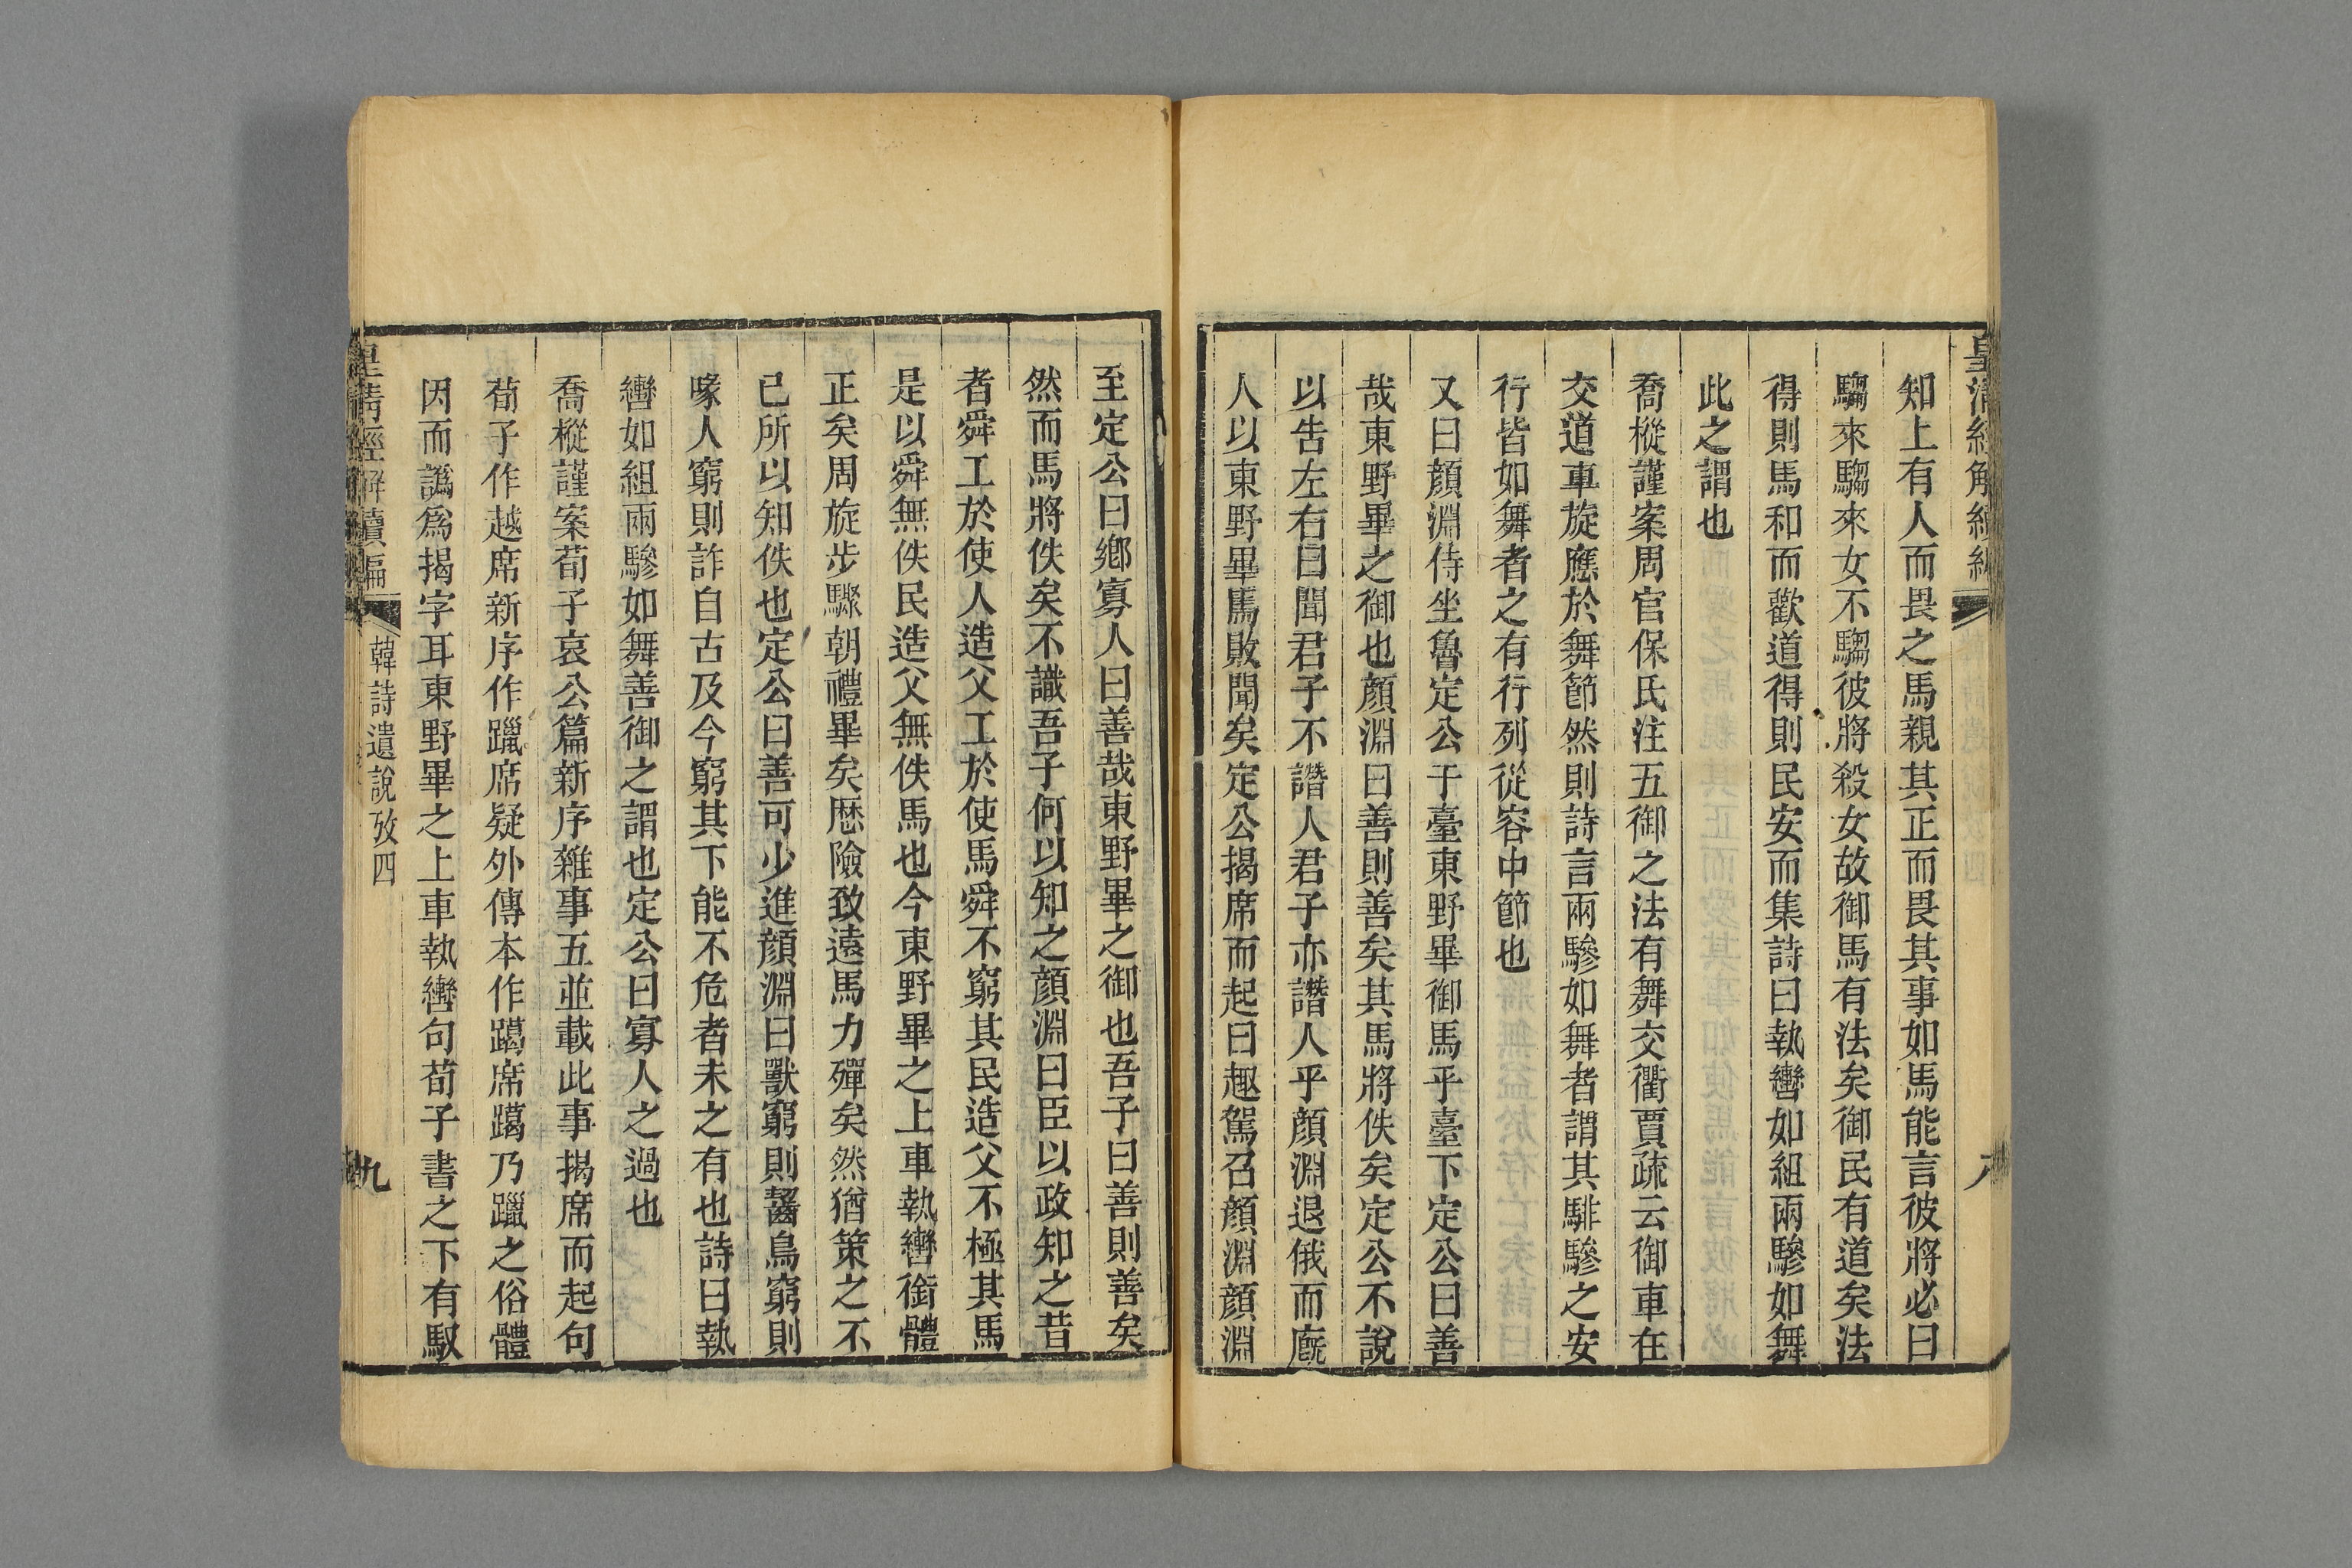 皇清經解續編
知上有人而畏之馬親其正而畏其事如馬能言彼將必曰
騶來騶來女不騶彼將殺女故御馬有法矣御民有道矣法
得則馬和而歡道得則民安而集詩曰執轡如組兩驂如舞
此之謂也
喬樅謹案周官保氏注五御之法有舞交衢賈疏云御車在
交道車旋應於舞節然則詩言兩驂如舞者謂其騑驂之安
行皆如舞者之有行列從容中節也
又曰顏淵侍坐魯定公于臺東野畢御馬乎臺下定公曰善
哉東野畢之御也顏淵曰善則善矣其馬將佚矣定公不說
以告左右曰聞君子不譖人君子亦譖人乎顏淵退俄而廄
人以東野畢馬敗聞矣定公揭席而起曰趣駕召顏淵顏淵
至定公曰鄉寡人曰善哉東野畢之御也吾子曰善則善矣
然而馬將佚矣不識吾子何以知之顏淵曰臣以政知之昔
者舜工於使人造父工於使馬舜不窮其民造父不極其馬
是以舜無佚民造父無佚馬也今東野畢之上車執轡銜體
正矣周旋步驟朝禮畢矣歷險致遠馬力殫矣然猶策之不
已所以知佚也定公曰善可少進顏淵曰獸窮則齧鳥窮則
喙人窮則詐自古及今窮其下能不危者未之有也詩曰執
轡如組兩驂如舞善御之謂也定公曰寡人之過也
喬樅謹案荀子哀公篇新序雜事五並載此事揭席而起句
荀子作越席新序作躐席疑外傳本作躢席躢乃躐之俗體
因而譌爲揭字耳東野畢之上車執轡句荀子書之下有馭
皇清經解續編
韓詩遺說攷四
九